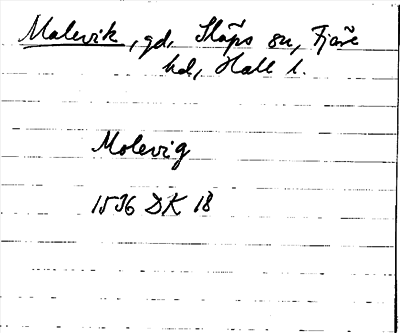 Malevik, gd, Släps sn, Fjäre
hd, Hall l.
Molevig
1536 DK 1B